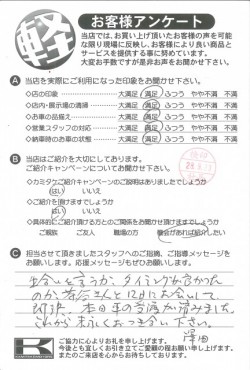 軽
お客様アンケート
当店では、お買い上げ頂いたお客様の声を可能
な限り現場に反映し、お客様により良い商品と
サービスを提供する事に努めています。
大変お手数ですが是非お声をお聞かせ下さい。
A 当店を実際にご利用になった印象をお聞かせ下さい。
◇店の印象 大満足 満足 ふつう やや不満 不満
◇店内・展示場の清掃 大満足 満足 ふつう やや不満 不満
◇お車の品揃え 大満足 満足 ふつう やや不満 不満
◇営業スタッフの対応 大満足 満足 ふつう やや不満 不満
◇納車時のお車の状態 大満足 満足 ふつう やや不満 不満
B 当店はご紹介を大切にしております。
ご紹介キャンペーンについてお聞かせ下さい。
◇カミタケご紹介キャンペーンのご説明はありましたでしょうか
はい いいえ
◇ご紹介を頂けますでしょうか
はい いいえ
◇具体的にご紹介頂ける方とのご関係をお聞かせ頂けますでしょうか
ご親族 ご友人 職場の方 機会があれば紹介したい
C 担当させて頂きましたスタッフへのご指摘、ご指導メッセージを
お願いします。応援メッセージもぜひお願いします。
出会いと言うか、タイミングが合かった
のか
さんと12日にお会いして
本日車の
これから末永くおつき合い下さい。
澤田
ご協力に心よりお礼を申し上げます。
今後とも宜しくお引き立てご愛顧の程お願い申し上げます。
またのご来店を心からお待ちしております。